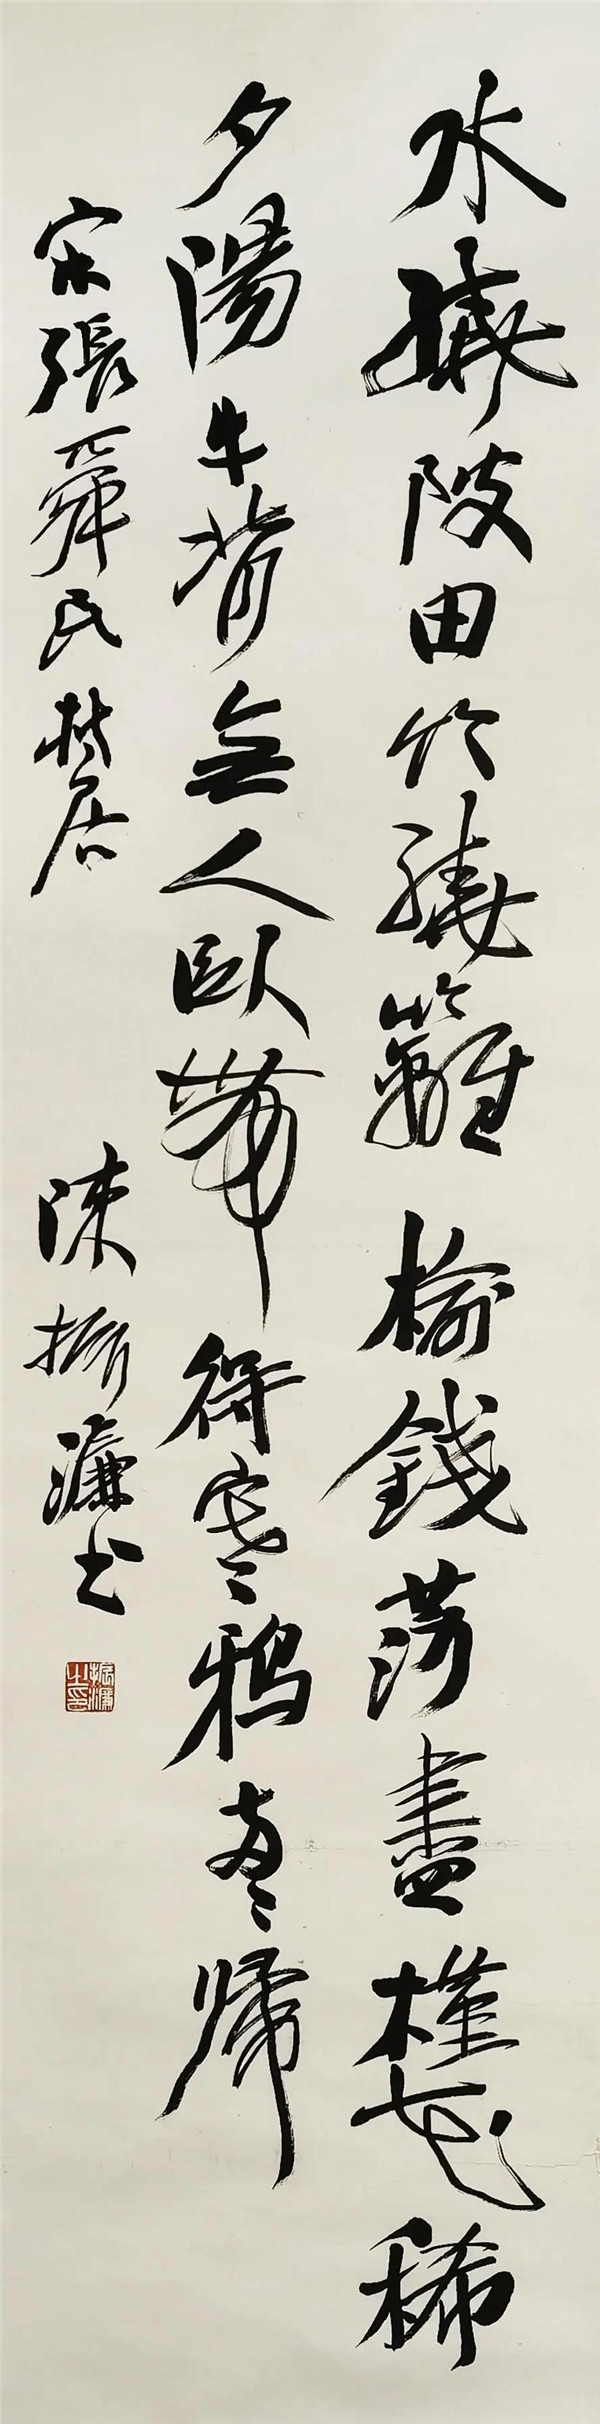 水繞陂田竹繞籬榆錢落盡槿花稀
夕陽牛背無人臥帶得寒鴉兩兩歸
宋張舜民村居
陳振濂書
振濂之印